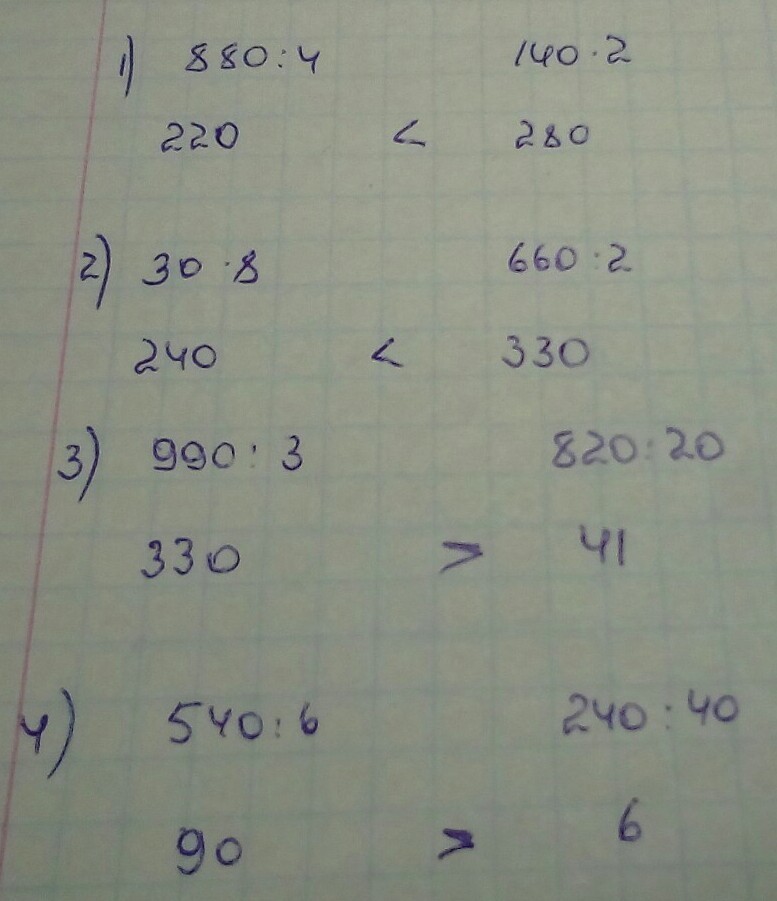 1) 880:4 140·2
220 < 280
2) 30·8 660:2
240 < 330
3) 990:3 820:20
330 > 41
4) 540:6 240:40
90 > 6